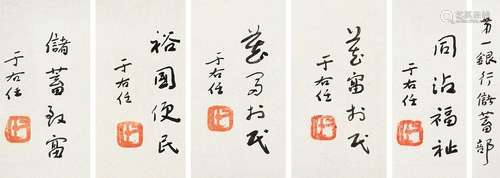 第一銀行儲蓄部
同沾福祉
于右任
藏富於民
于右任
藏富於民
于右任
裕國便民
于右任
儲蓄致富
于右任